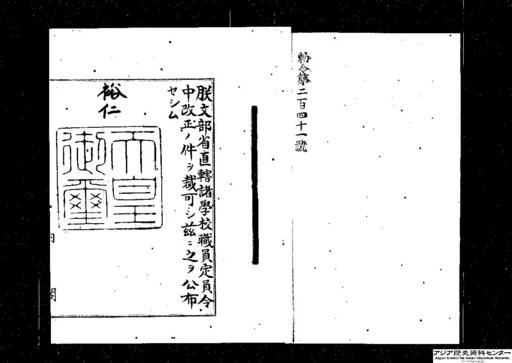 勅令第二百四十一號
朕文部省直轄諸學校職員定員令
中改正ノ件ヲ裁可シ茲ニ之ヲ公布
セシム
裕仁
天皇
御璽
内
閣
アジア歴史資料センター
Japan Center for Asian Historical Records